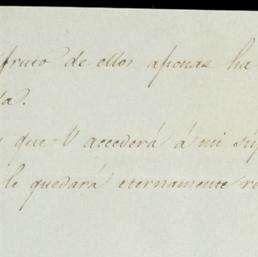 fruto de ellos apenas ha
da.
que V accederá á mi súp
le quedará eternamente re